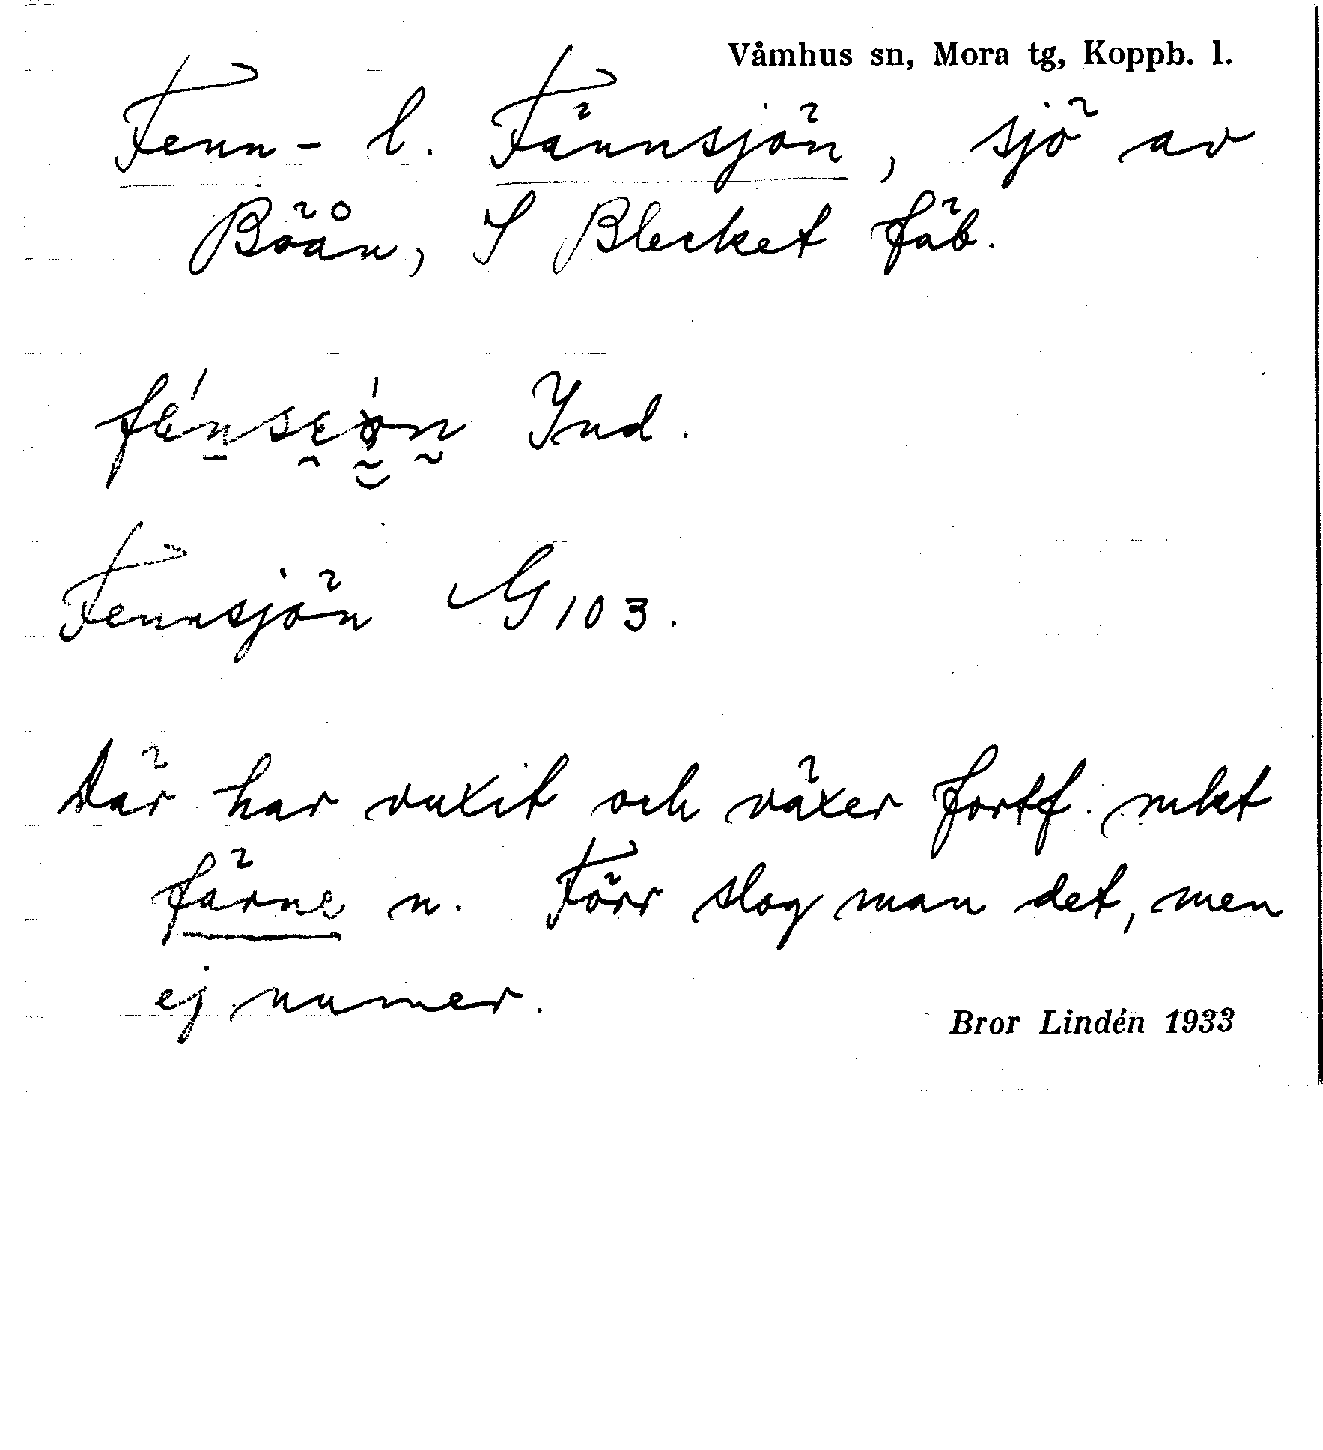 Våmhus sn, Mora tg, Koppb. l.
Fenn- l. Fännsjön, sjö av
Böån, S Blecket fäb.
Ind.
Fennsjön G 103.
Där har vuxit och växer fortf. mkt
färne n. Förr slog man det, men
ej numer.
Bror Lindén 1933